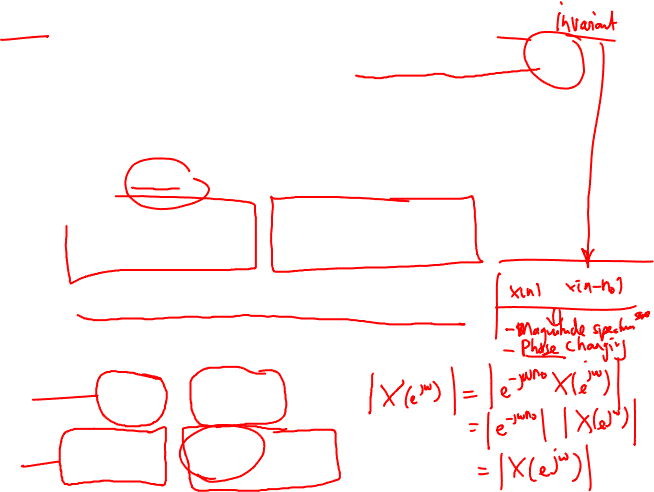 invariant
x[n] x[n-n₀]
- Magnitude spectrum same
- Phase changing
|X'(e^{jω})| = |e^{-jωn₀} X(e^{jω})|
= |e^{-jωn₀}| |X(e^{jω})|
= |X(e^{jω})|